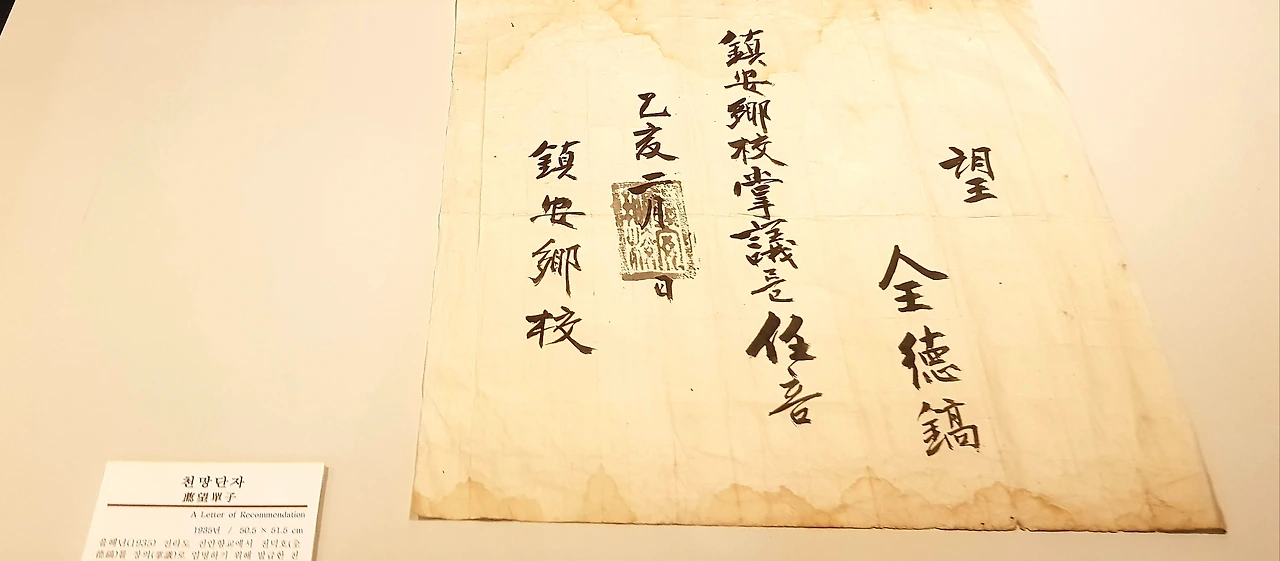 望
全德鎬
鎮安鄉校掌議 任
乙亥二月 日
鎮安鄉校
천망단자
薦望單子
A Letter of Recommendation
1935년 / 50.5 × 51.5 cm
을해년(1935) 전라도 진안향교에서 전덕호(全
德鎬)를 장의(掌議)로 임명하기 위해 발급한 천